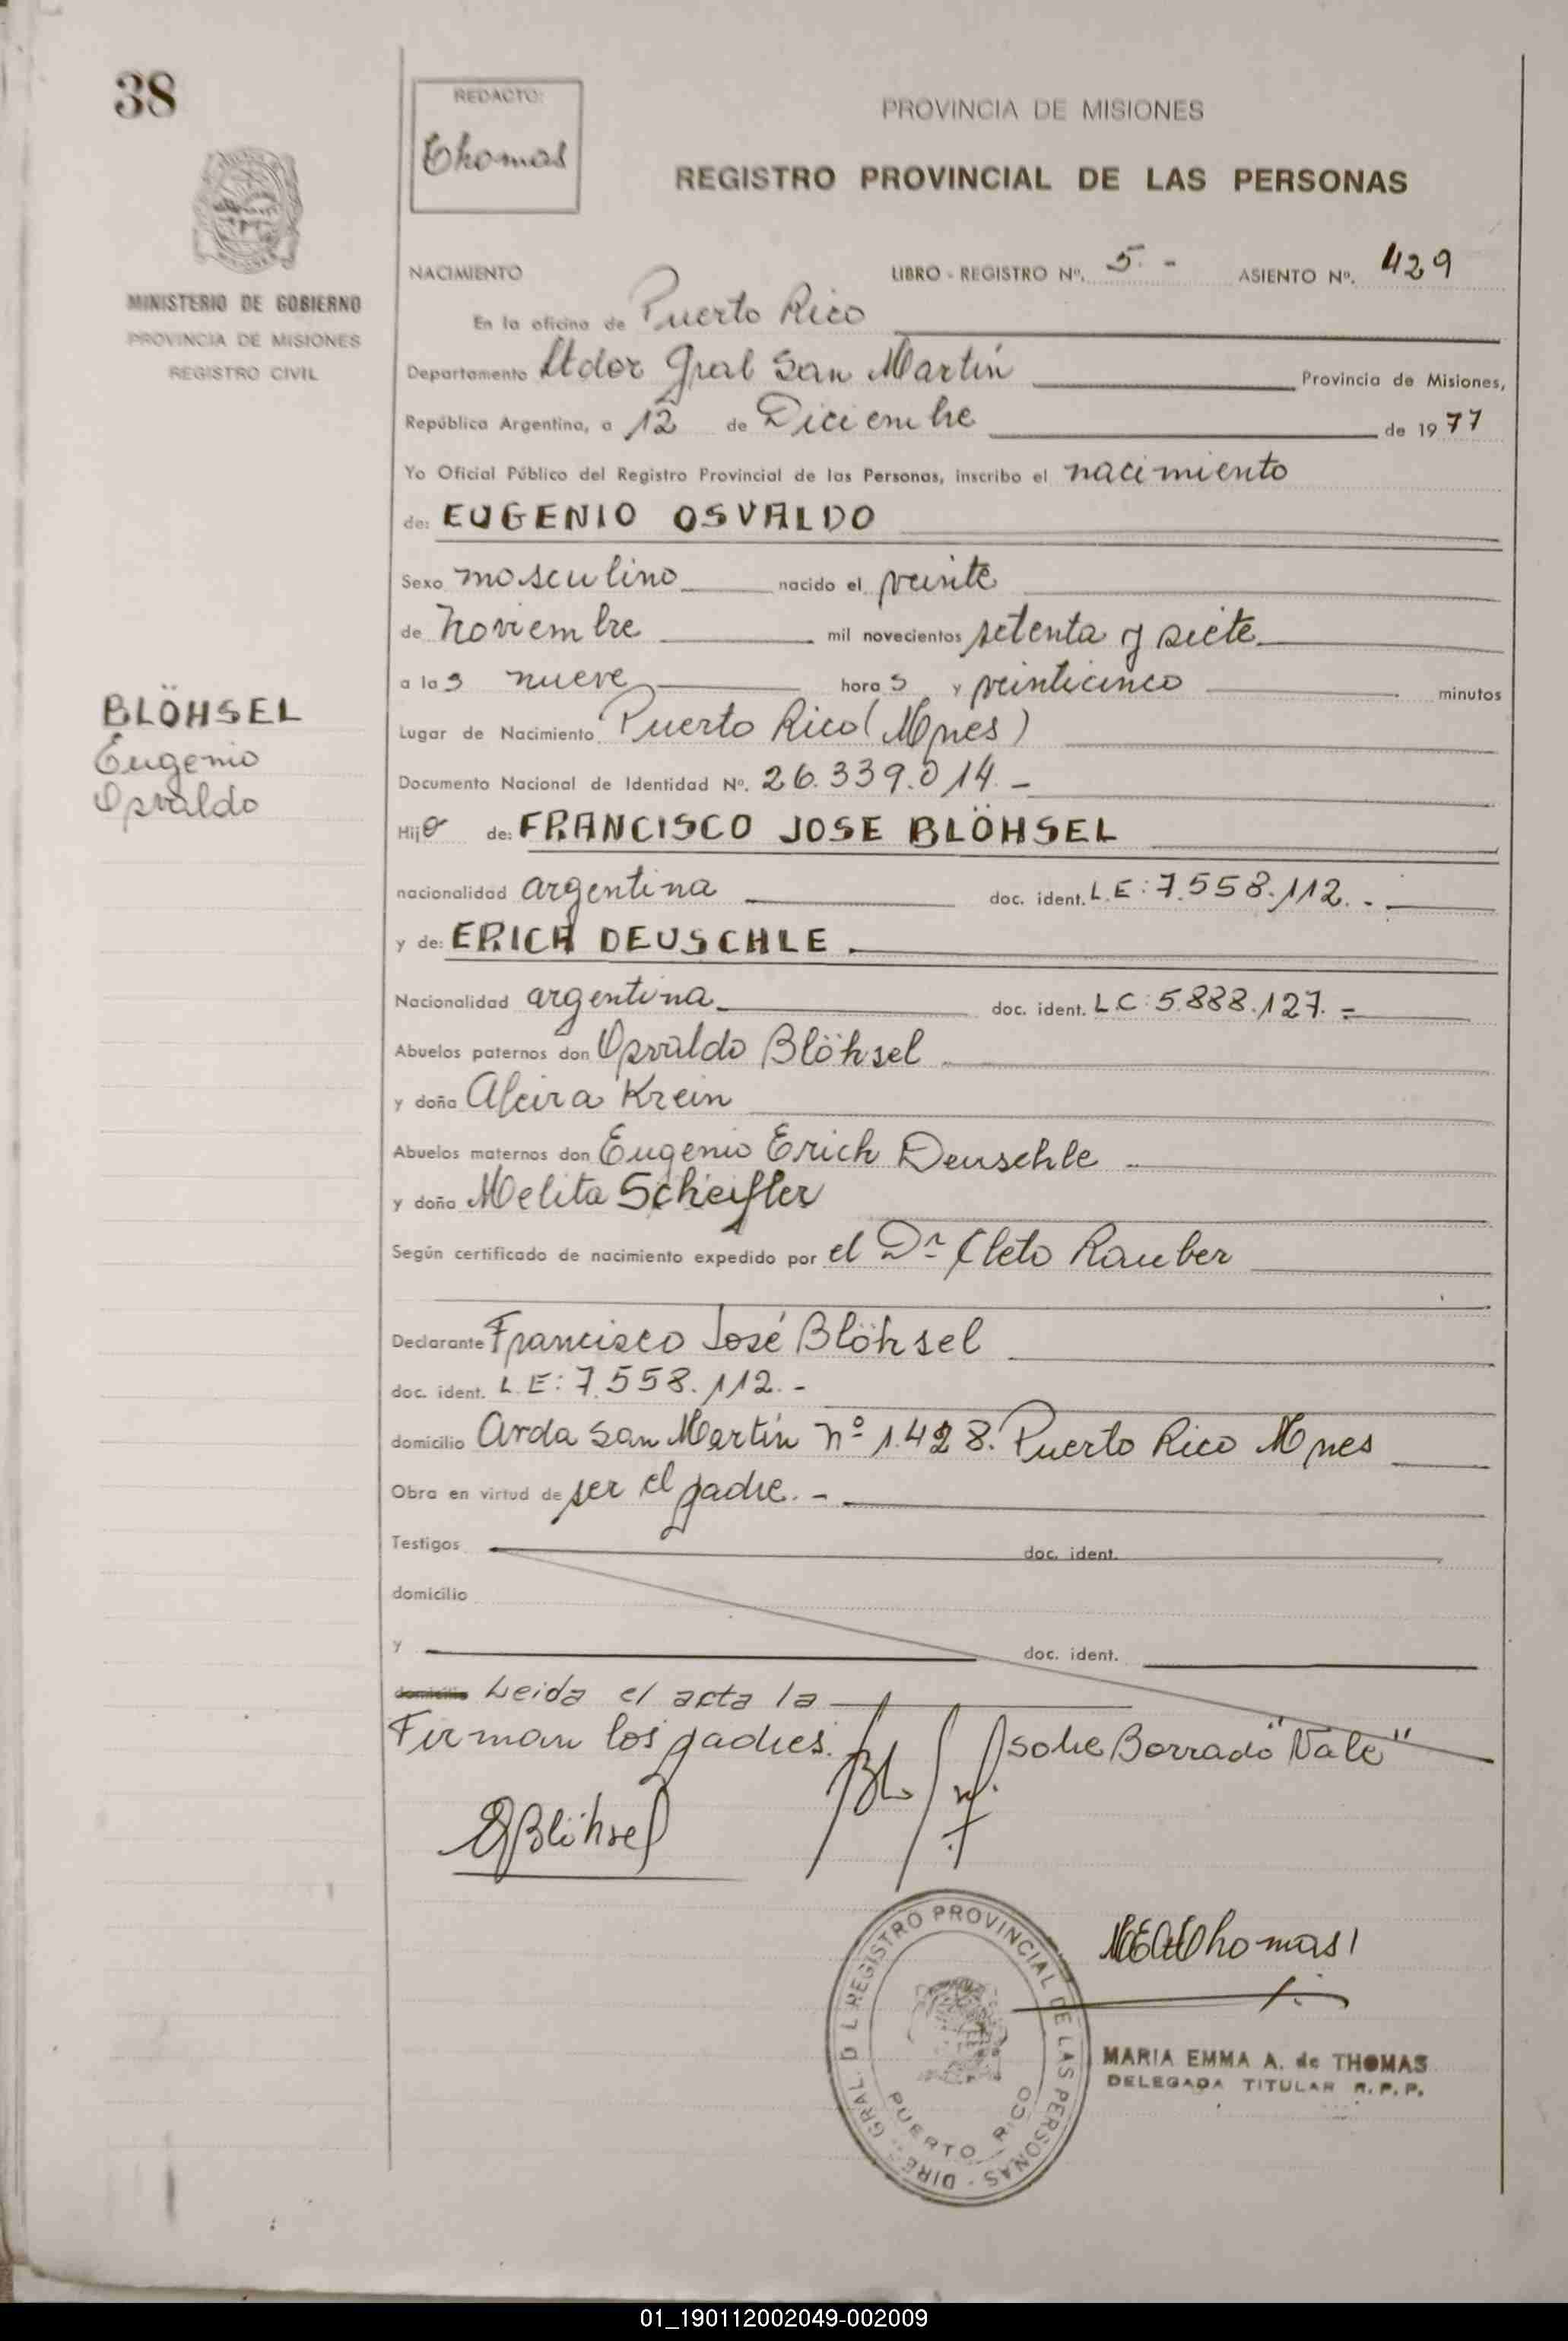 38
REDACTO:
Thomas
PROVINCIA DE MISIONES
REGISTRO PROVINCIAL DE LAS PERSONAS
MINISTERIO DE GOBIERNO
PROVINCIA DE MISIONES
REGISTRO CIVIL
NACIMIENTO LIBRO - REGISTRO Nº. 5.- ASIENTO Nº. 429
En la oficina de Puerto Rico
Departamento Ltdor Gral San Martín Provincia de Misiones,
República Argentina, a 12 de Diciembre de 1977
Yo Oficial Público del Registro Provincial de las Personas, inscribo el nacimiento
de: EUGENIO OSVALDO
Sexo masculino nacido el veinte
de noviembre mil novecientos setenta y siete
a las nueve horas y veinticinco minutos
BLÖHSEL
Eugenio
Osvaldo
Lugar de Nacimiento Puerto Rico (Mnes)
Documento Nacional de Identidad Nº. 26.339.014.-
Hijo de: FRANCISCO JOSE BLÖHSEL
nacionalidad argentina doc. ident. L.E: 7.558.112.-
y de: ERICA DEUSCHLE.
Nacionalidad argentina doc. ident. L.C: 5.888.127.=
Abuelos paternos don Osvaldo Blöhsel
y doña Alcira Krein
Abuelos maternos don Eugenio Erich Deuschle
y doña Melita Scheifler
Según certificado de nacimiento expedido por el Dr Cleto Rauber
Declarante Francisco José Blöhsel
doc. ident. L.E: 7.558.112.-
domicilio Avda San Martín nº 1.428. Puerto Rico Mnes
Obra en virtud de ser el padre.-
Testigos doc. ident.
domicilio
y doc. ident.
domicilio Leida el acta la
Firman los padres. sobre Borrado "Vale"
Blöhsel
Thomas
REGISTRO PROVINCIAL DE LAS PERSONAS - DIREC. GRAL. D L
PUERTO RICO
MARIA EMMA A. de THOMAS
DELEGADA TITULAR R.P.P.
01_190112002049-002009